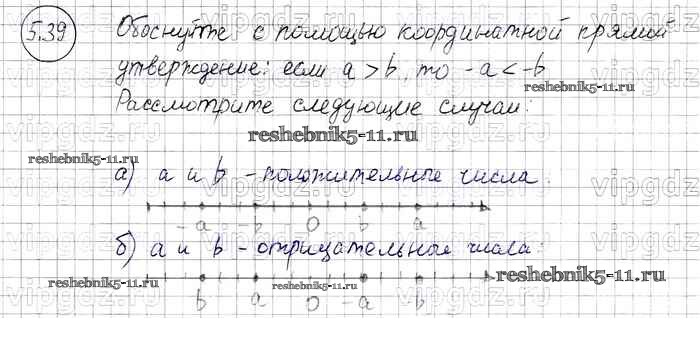 5.39
Обоснуйте с помощью координатной прямой
утверждение: если a > b, то -a < -b
Рассмотрите следующие случаи:
reshebnik5-11.ru
reshebnik5-11.ru
а) a и b - положительные числа.
-a -b 0 b a
б) a и b - отрицательные числа:
reshebnik5-11.ru
reshebnik5-11.ru
reshebnik5-11.ru
b a 0 -a -b